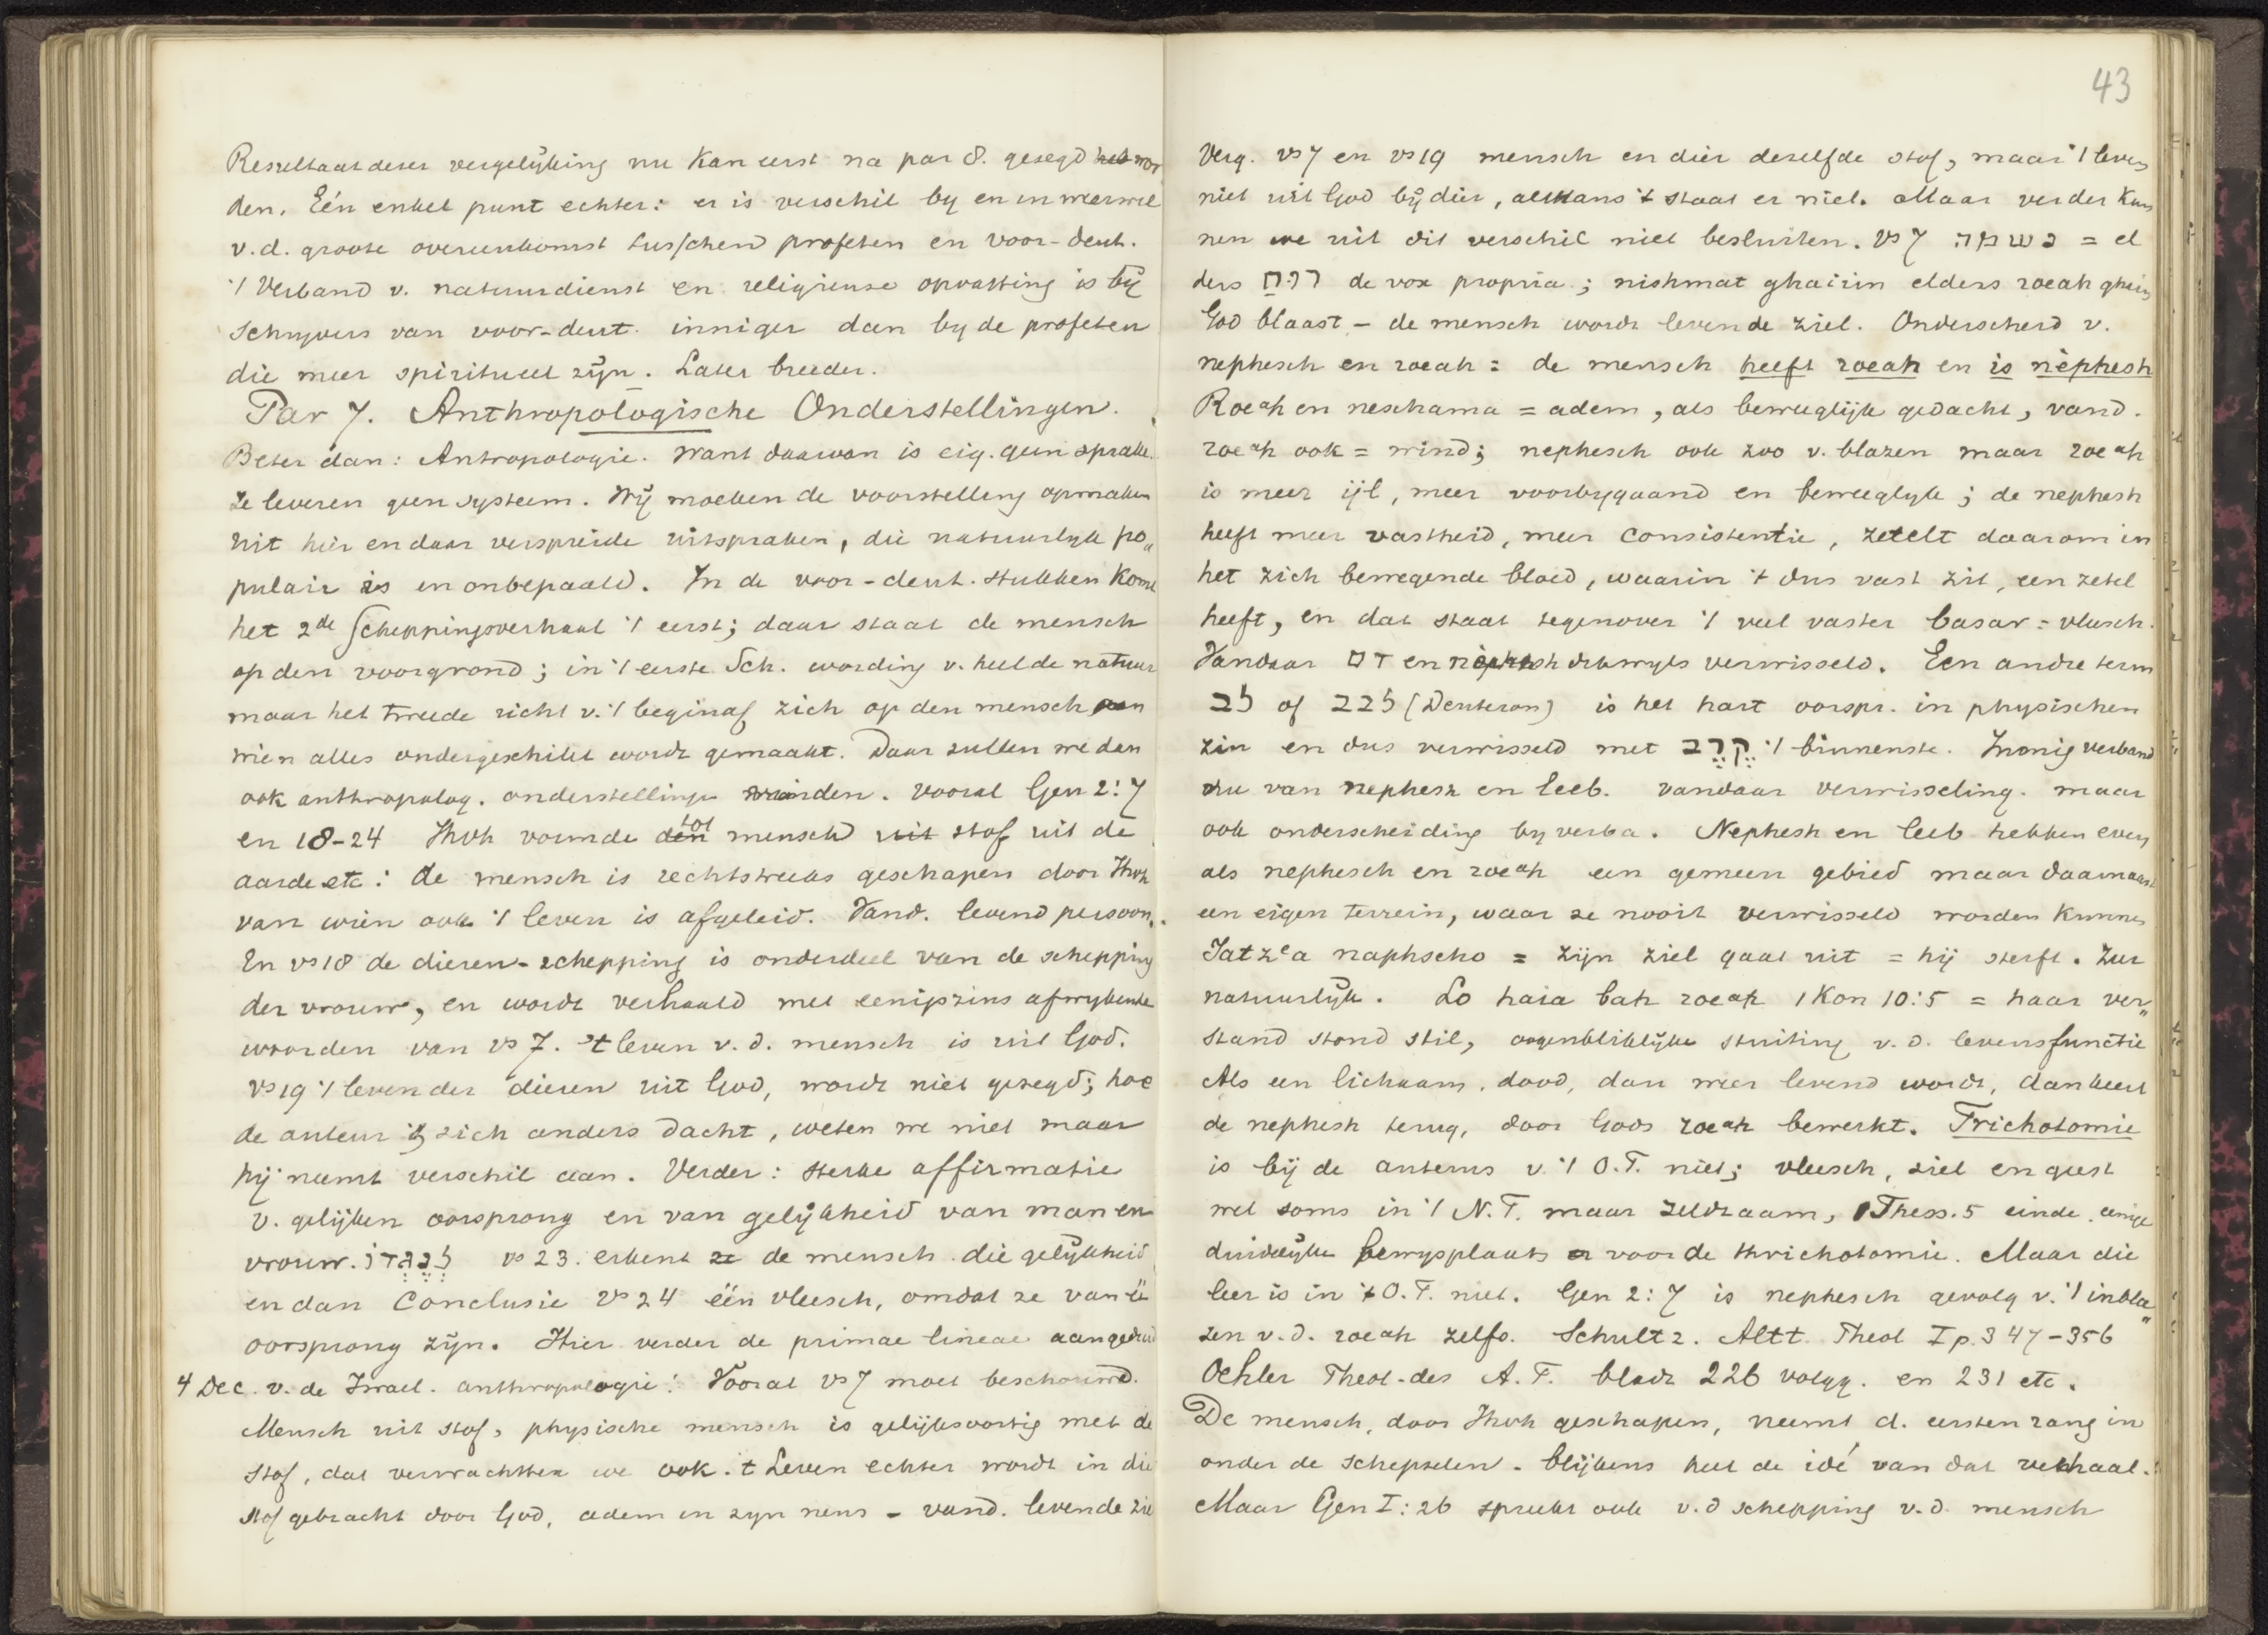 Resultaat dezer vergelijking nu kan eerst na par 8. gezegd wor
den. Eén enkel punt echter: er is verschil by en in weerwil
v.d. groote overeenkomst tusschen profeten en voor-deut.
't Verband v. natuurdienst en religieuse opvatting is bij
schryvers van voor-deut. inniger dan by de profeten
die meer spiritueel zijn. Later breeder.
Par 7. Anthropologische Onderstellingen.
Beter dan: Antropologie. Want daarvan is eig. geen sprake.
Ze leveren geen systeem. Wij moeten de voorstelling opmaken
uit hier en daar verspreide uitspraken, die natuurlyk po„
pulair is en onbepaald. In de voor-deut. stukken komt
het 2de Scheppingsverhaal 't eerst; daar staat de mensch
op den voorgrond; in 't eerste Sch. wording v. heel de natuur
maar het tweede richt v. 't begin af zich op den mensch aan
wien alles ondergeschikt wordt gemaakt. Daar zullen we dan
ook anthropolog. onderstellingen vinden. Vooral Gen 2:7
en 18-24 Jhvh vormde den mensch tot stof uit de
aarde etc: de mensch is rechtstreeks geschapen door Jhvh
van wien ook 't leven is afgeleid. Vand. levend persoon.
In vs 18 de dieren-schepping is onderdeel van de schepping
der vrouw, en wordt verhaald met eenigzins afwykende
woorden van vs 7. 't leven v.d. mensch is uit God.
vs 19 't leven der dieren uit God, wordt niet gezegd; hoe
de auteur zich anders dacht, weten we niet maar
hij neemt verschil aan. Verder: sterke affirmatie
v. gelijken oorsprong en van gelijkheid van man en
vrouw. כְּנֶגְדּוֹ vs 23. erkent de mensch die gelijkheid
en dan Conclusie vs 24 één vleesch, omdat ze van éé
oorsprong zijn. Hier verder de primae lineae aangeduid
4 Dec. v. de Israel. anthropologie: Vooral vs 7 moet beschouwd.
Mensch uit stof, physische mensch is gelijksoortig met de
stof, dat verwachtten we ook. 't Leven echter wordt in die
stof gebracht door God, adem in zyn neus - vand. levende zie
43
Verg. vs 7 en vs 19 mensch en dier dezelfde stof, maar 't leven
niet uit God bij dier, althans 't staat er niet. Maar verder kun
nen we uit dit verschil niet besluiten. Vs 7 נשמה = el
ders רוח de vox propria; nishmat ghaiim elders roeah ghaiim
God blaast - de mensch wordt levende ziel. Onderscheid v.
nephesch en roeah: de mensch heeft roeah en is nèphesh
Roeah en neschama = adem, als beweeglijk gedacht, vand.
roeah ook = wind; nephesch ook zoo v. blazen maar roeah
is meer ijl, meer voorbygaand en beweeglyk; de nephesh
heeft meer vastheid, meer consistentie, zetelt daarom in
het zich bewegende bloed, waarin 't dus vast zit, een zetel
heeft, en dat staat tegenover 't veel vaster basar = vleesch.
Vandaar דם en nèphesh dikwyls verwisseld. Een andre term
לב of לבב (Deuteron) is het hart oorspr. in physischen
zin en dus verwisseld met קֶרֶב 't binnenste. Innig verband
nu van nephesh en leeb. vandaar verwisseling. maar
ook onderscheiding by verba. Nephesh en leeb hebben even
als nephesch en roeah een gemeen gebied maar daarnaast
een eigen terrein, waar ze nooit verwisseld worden kunnen
Jatzea naphscho = zijn ziel gaat uit = hij sterft. Zeer
natuurlijk. Lo haia bah roeah 1 Kon 10:5 = haar ver„
stand stond stil, oogenblikkelijke stuiting v.d. levensfunctie
Als een lichaam, dood, dan weer levend wordt, dan keert
de nephesh terug, door Gods roeah bewerkt. Trichotomie
is bij de auteurs v. 't O.T. niet; vleesch, ziel en geest
wel soms in 't N.T. maar zeldzaam, 1 Thess. 5 einde. eenige
duidelijke bewysplaats voor de thrichotomie. Maar die
leer is in 't O.T. niet. Gen 2:7 is nephesch gevolg v. 't inbla„
zen v.d. roeah zelfs. Schultz. Altt. Theol I p. 347-356
Oehler Theol. des A.T. bladz 226 volgg. en 231 etc.
De mensch, door Jhvh geschapen, neemt d. eersten rang in
onder de schepselen. blijkens heel de idé van dat verhaal.
Maar Gen I:26 spreekt ook v.d schepping v.d. mensch